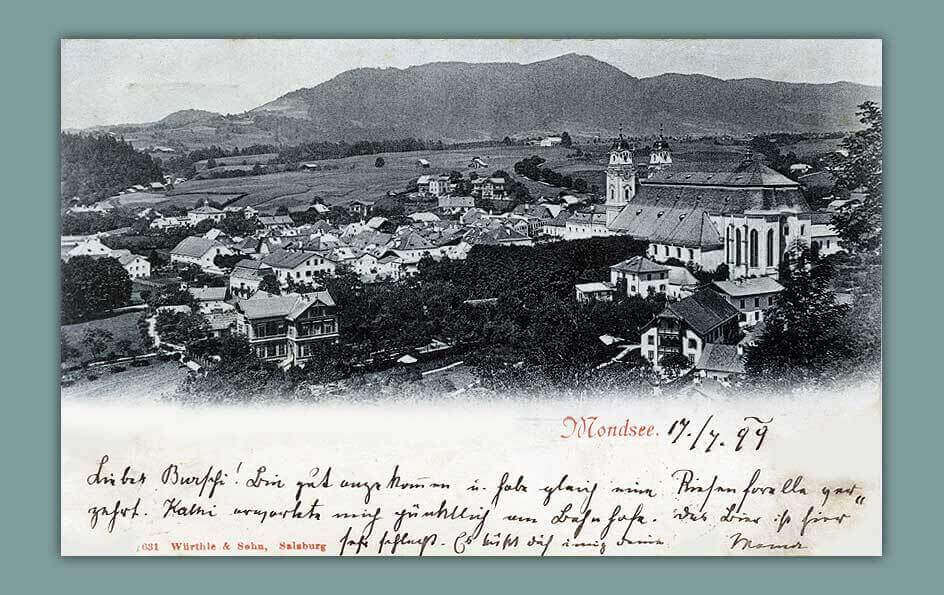 Mondsee. 17./7. 99
Lieber Burschi! Bin gut angekommen u. habe gleich eine Riesenforelle ver-
zehrt. Kathi erwartete mich pünktlich am Bahnhofe. Das Bier ist hier
631 Würthle & Sohn, Salzburg sehr schlecht. Es küßt dich innig deine